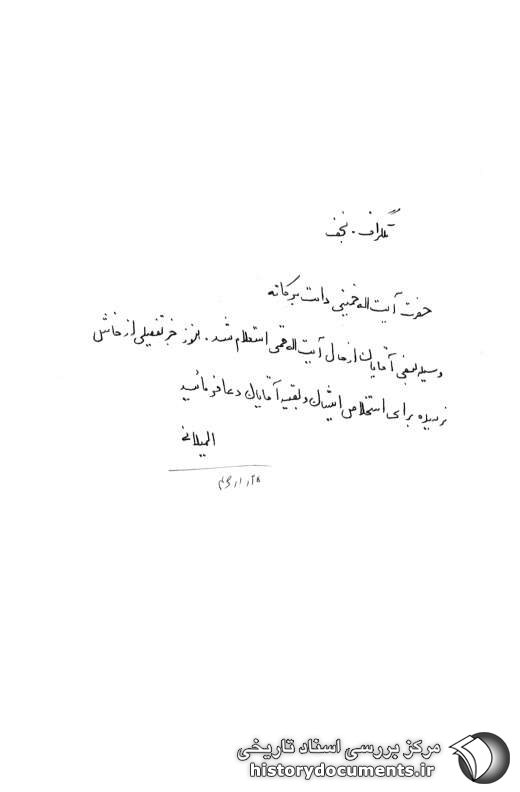 تلگراف. نجف
حضرت آیت اله خمینی دامت برکاته
وسیله بعضی آقایان از حال آیت اله قمی استعلام شد. هنوز خبر تفصیلی از خاش
نرسیده برای استخلاص ایشان و بقیه آقایان دعا فرمائید
المیلانی
مرکز بررسی اسناد تاریخی
historydocuments.ir